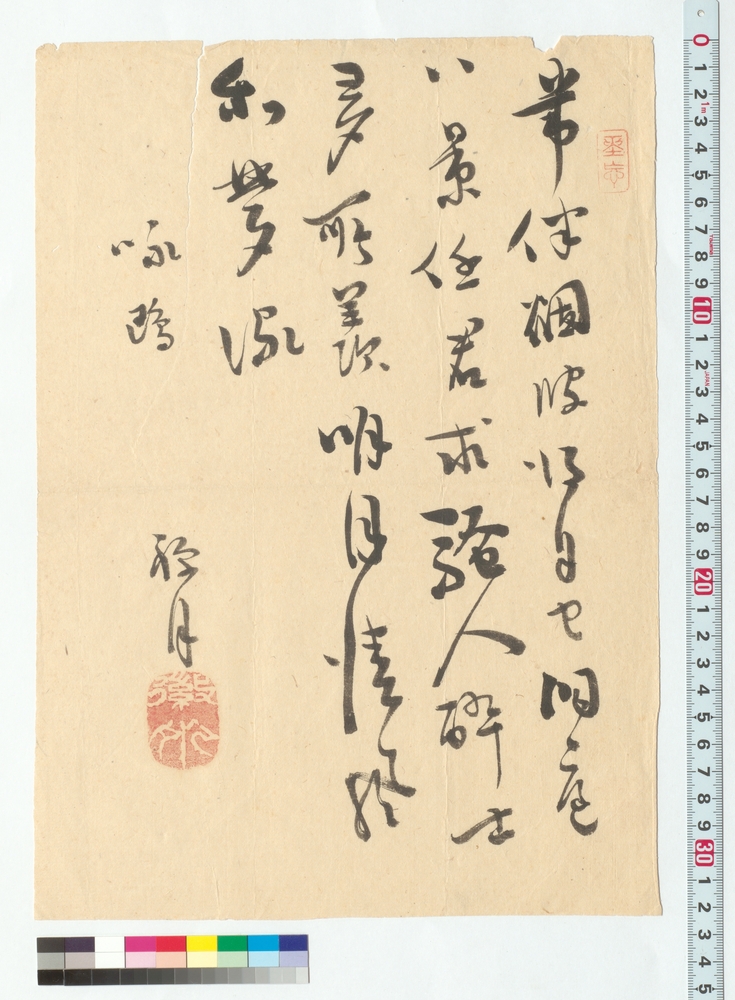 常伴烟波自由洞庭
八景任君求騒人酔士
多所羨明月清
和夢流
咏鴎
月
0 1 2 3 4 5 6 7 8 9 10 1 2 3 4 5 6 7 8 9 20 1 2 3 4 5 6 7 8 9 30 1 2 3 4 5
1m
JAPAN